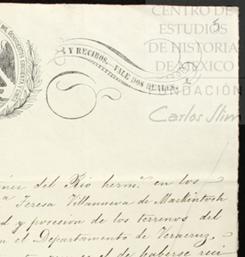 CENTRO DE
ESTUDIOS
DE HISTORIA
DE MÉXICO
FUNDACIÓN
Carlos Slim
Y RECIBOS. VALE DOS REALES.
del Rio herm.ⁿ en los
Teresa Villanueva de Mackintosh
d y posecion de los terrenos del
n el Departamento de Veracruz,
de haberse reci